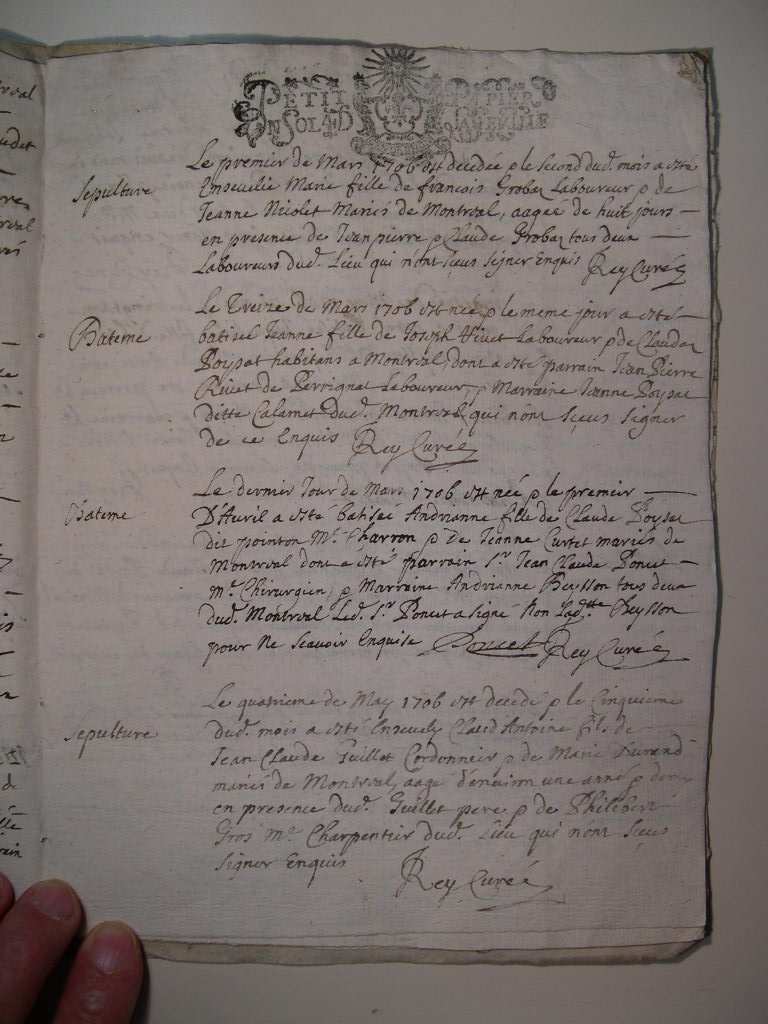 PETIT PAPIER
UN SOL 4D LA FEUILLE
Sepulture
Le premier de Mars 1706 est decedée & le second dud. mois a esté
Ensevelie Marie fille de francois Grobaz Laboureur & de
Jeanne Nicolet Mariés de Montreal, aageé de huit jours
en presence de Jean pierre & Claude Grobaz tous deux
Laboureurs dud. Lieu qui nont sçeus signer Enquis Rey Curé
Bateme
Le Treize de Mars 1706 est née & le meme jour a esté
batiseé Jeanne fille de Joseph Laboureur & de Claudaz
Poysat habitans a Montreal, dont a esté parrain Jean Pierre
Rivet de Perrignat Laboureur, & Marraine Jeanne Poysat
ditte Calamet dud. Montreal, qui nont sçeus signer
de ce Enquis Rey Curé
Bateme
Le dernier Jour de Mars 1706 est née & le premier
D'Avril a esté batiseé Andrianne fille de Claude Poysat
dit pointon Me. Charron & de Jeanne Curtet mariés de
Montreal dont a esté parrain Sr. Jean Claude Poncet
Me. Chirurgien, & Marraine Andrianne Reysson tous deux
dud. Montreal Led. Sr. Poncet a signé Non Lad.tte Reysson
pour Ne Scavoir Enquise Poncet Rey Curé
Sepulture
Le quatrieme de May 1706 est decedé & le Cinquieme
dud. mois a esté Ensevely Claud Antoine fils de
Jean Claude Guillet Cordonnier & de Marie Durand
mariés de Montreal, aagé d'environ une anné & demy
en presence dud. Guillet pere & de Philibert
Gros Me. Charpentier dud. Lieu qui nont sçeus
signer Enquis Rey Curé